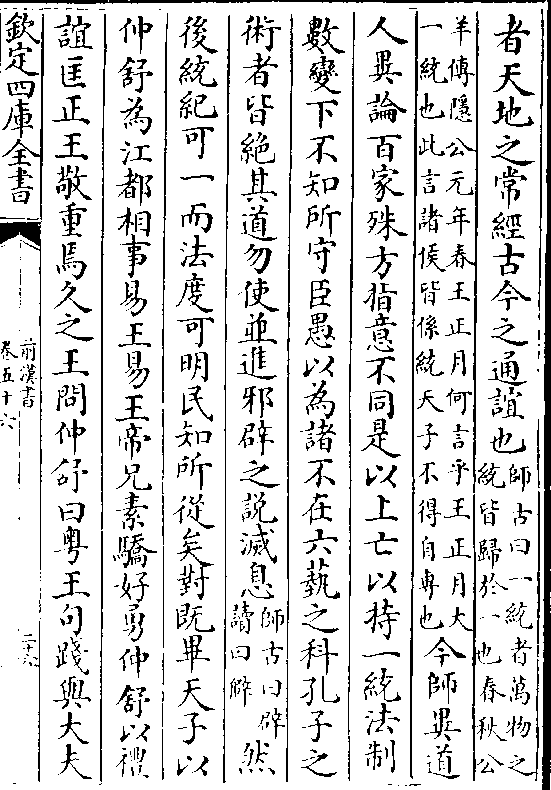 者天地之常經古今之通誼也師古曰一統者萬物之統皆歸於一也春秋公
羊傳隱公元年春王正月何言乎王正月大一統也此言諸侯皆係統天子不得自專也今師異道
人異論百家殊方指意不同是以上亡以持一統法制
數變下不知所守臣愚以為諸不在六藝之科孔子之
術者皆絶其道勿使並進邪辟之説滅息師古曰辟讀曰僻然
後統紀可一而法度可明民知所從矣對既畢天子以
仲舒為江都相事易王易王帝兄素驕好勇仲舒以禮
誼匡正王敬重焉久之王問仲舒曰粤王句踐與大夫
欽定四庫全書
前漢書
卷五十六
二十六